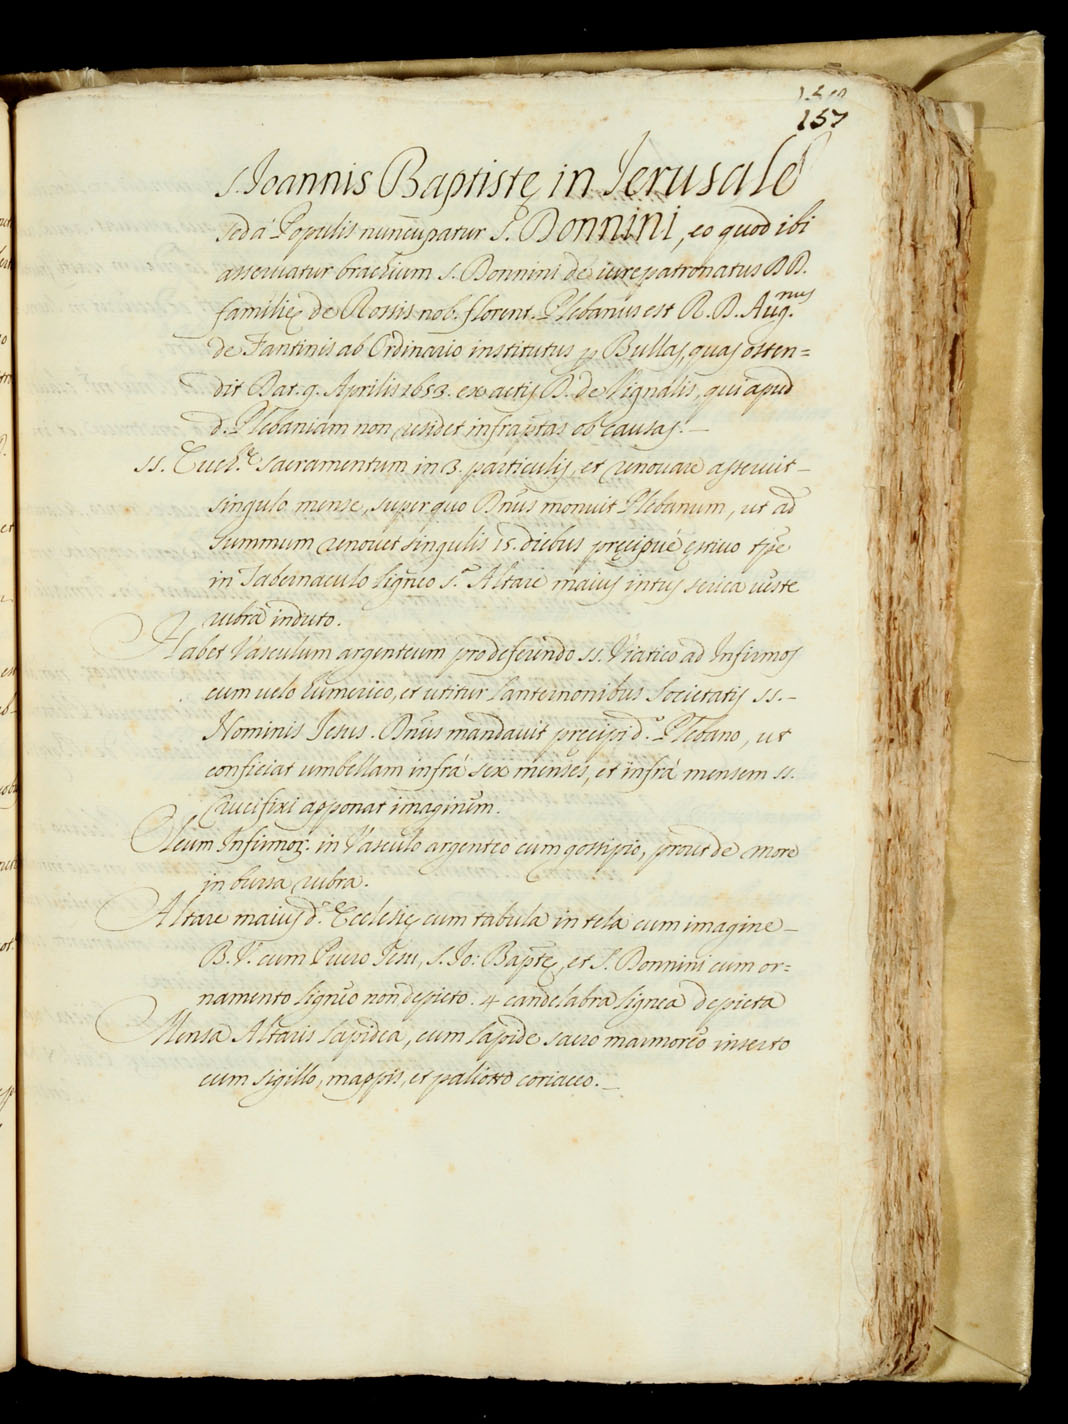 157
S. Joannis Baptistę in Jerusalē
sed à Populis nuncupatur S. Donnini, eo quod ibi
asseruatur brachium S. Donnini de iurepatronatus DD.
familię de Rossis nob. florent. Plebanus est R. D. Aug.nus
de Fantinis ab Ordinario institutus p Bullas, quas osten=
dit Dat. 9. Aprilis 1653. ex actis D. de Vignalis, qui apud
d. Plebaniam non residet infraptas ob causas. –
SS. Euch.e Sacramentum in 3. particulis, et renouare asseruit –
singulo mense, super quo Dnus monuit Plebanum, ut ad
summum renouet singulis 15. diebus pręcipuè ęstiuo tpe
in Tabernaculo ligneo s.r Altare maius intus serica ueste
rubra induto.
Habet Vasculum argenteum pro deferendo SS. Viatico ad Infirmos
cum uelo humerico, et utitur lanternonibus Societatis SS. –
Nominis Jesus. Dnus mandauit pręcipi d.o Plebano, ut
conficiat umbellam infrà sex menses, et infrà mensem SS.
Crucifixi apponat imaginem.
Oleum Infirmoꝝ. in Vasculo argenteo cum gossipio, prout de more
in bursa rubra.
Altare maius d.ę Ecclesię cum tabula in tela cum imagine –
B. V. cum Puero Jesu, S. Jo: Baptę, et S. Donnini cum or=
namento ligneo non depicto. 4 candelabra lignea depicta
Mensa Altaris lapidea, cum lapide sacro marmoreo inserto
cum sigillo, mappis, et paliotto coriaceo. –